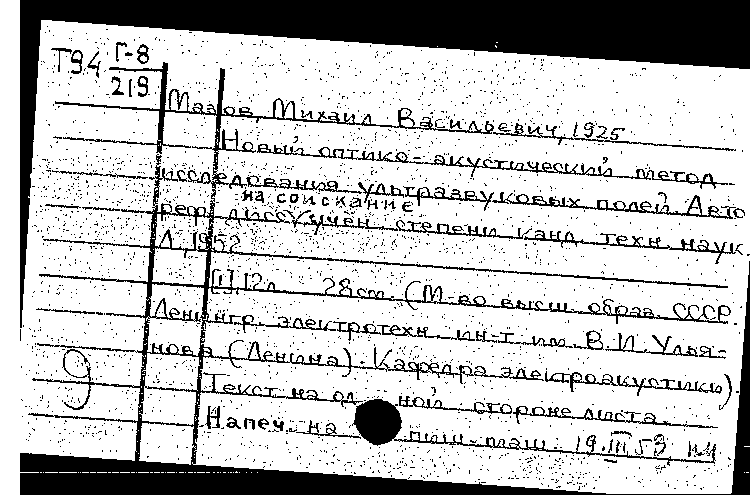 Т94 Г-8
219
Мазов, Михаил Васильевич, 1925
Новый оптико-акустический метод
исследования ультразвуковых полей. Авто
на соискание
реф. дисс. учен. степени канд. техн. наук.
Л., 1952
[1], 12л. 28cm. (М-во высш. образ. СССР.
Ленингр. электротехн. ин-т им. В.И. Улья-
нова (Ленина). Кафедра электроакустики).
9
Текст на одной стороне листа.
Напеч. на пиш. маш. 19.III 53,